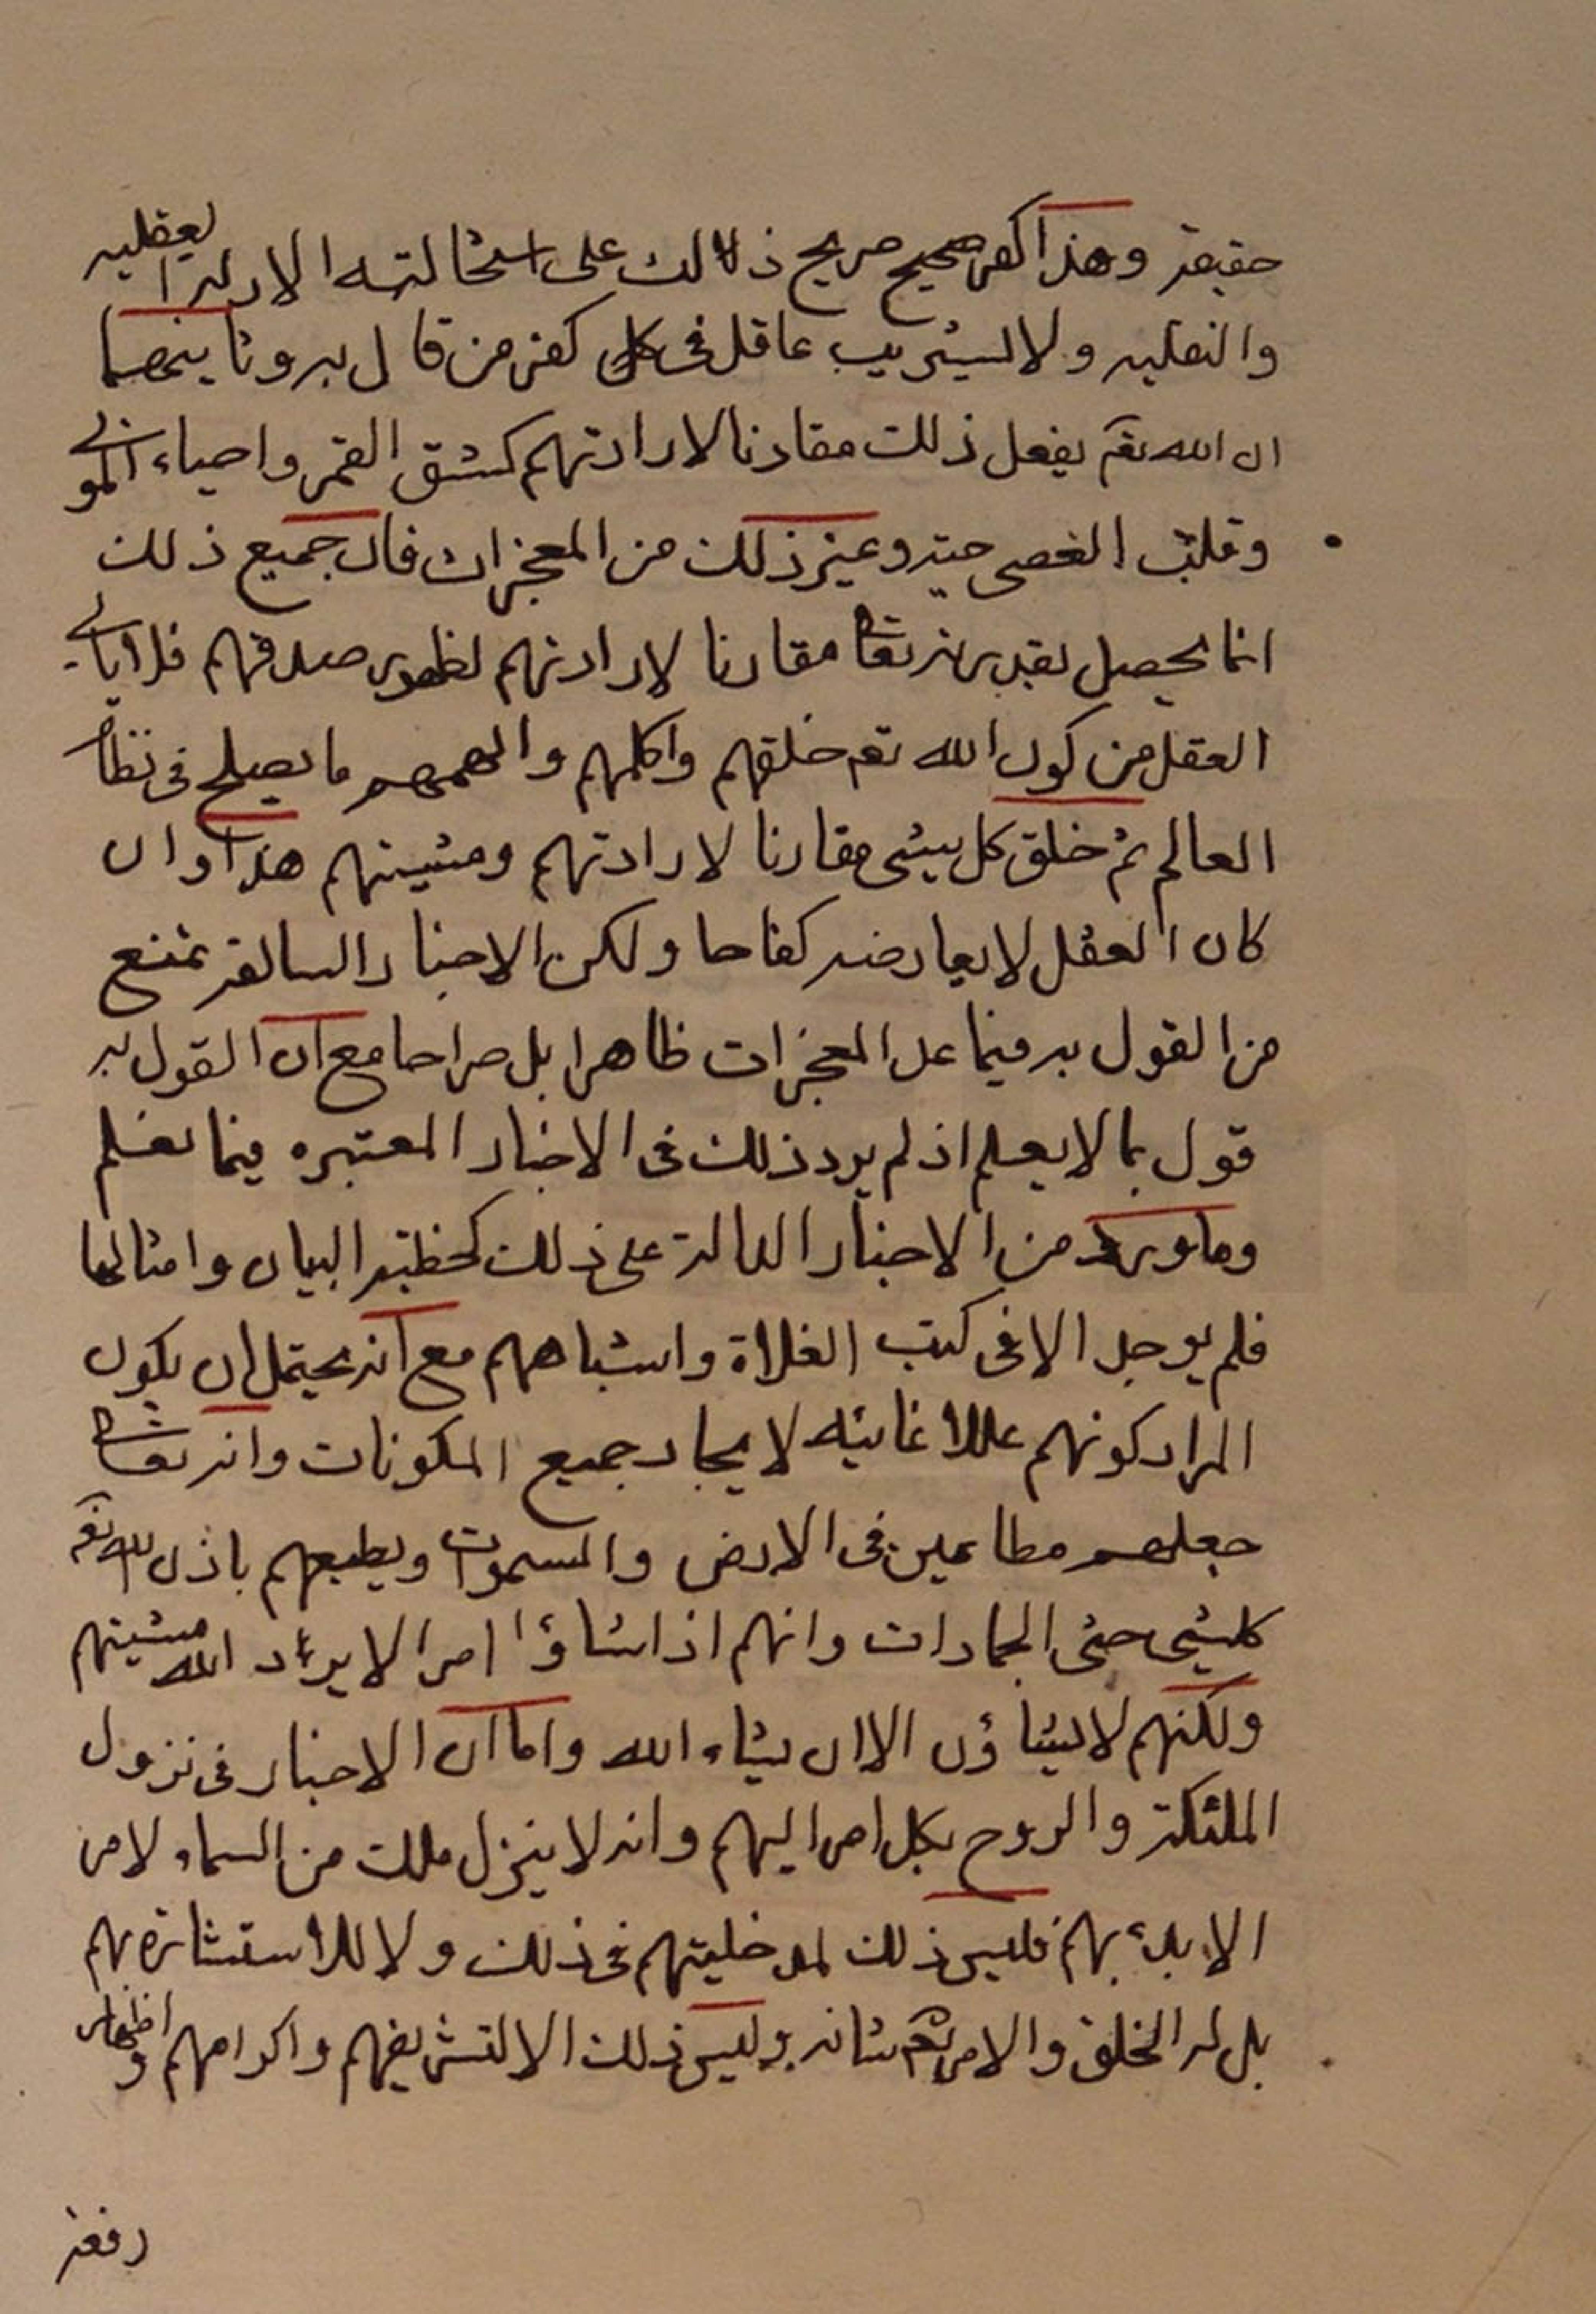 حقيقة وهذا كفر صحيح صريح ذلالك على استحالته الادلة العقليه
والنقليه ولا يستريب عاقل فى كل كفر من قال به وثانيهما
ان الله تعم يفعل ذلك مقارنا لارادتهم كشق القمر واحياء الموتى
وقلب العصى حية وغير ذلك من المعجزات فان جميع ذلك
انما يحصل بقدرته تعالى مقارنا لارادتهم لظهور صدقهم فلا يابى
العقل من كون الله تعم خلقهم واكلمهم والهمهم ما يصلح فى نظام
العالم ثم خلق كل شىء مقارنا لارادتهم ومشيتهم هذا وان
كان العقل لا يعارضه كفاحا ولكن الاخبار السالفة تمنع
من القول به فيما عدا المعجزات ظاهرا بل صراحا مع ان القول به
قول بما لا يعلم اذ لم يرد ذلك فى الاخبار المعتبره فيما نعلم
وما ورد من الاخبار الدالة على ذلك كخطبة البيان وامثالها
فلم يوجد الا فى كتب الغلاة واشباههم مع انه يحتمل ان يكون
المراد كونهم عللا غائيه لايجاد جميع المكونات وانه تعالى
جعلهم مطاعين فى الارض والسموات ويطيعهم باذن الله تعم
كلشئ حتى الجمادات وانهم اذا شاؤا امرا لا يرد الله مشيتهم
ولكنهم لا يشاؤن الا ان يشاء الله واما ان الاخبار فى نزول
الملئكة والروح بكل امر اليهم وانه لا ينزل ملك من السماء لامر
الا بدء بهم فليس ذلك لمدخليتهم فى ذلك ولا للاستشارة بهم
بل له الخلق والامر تعم شانه وليس ذلك الا لتشريفهم واكرامهم واظهار
رفعة